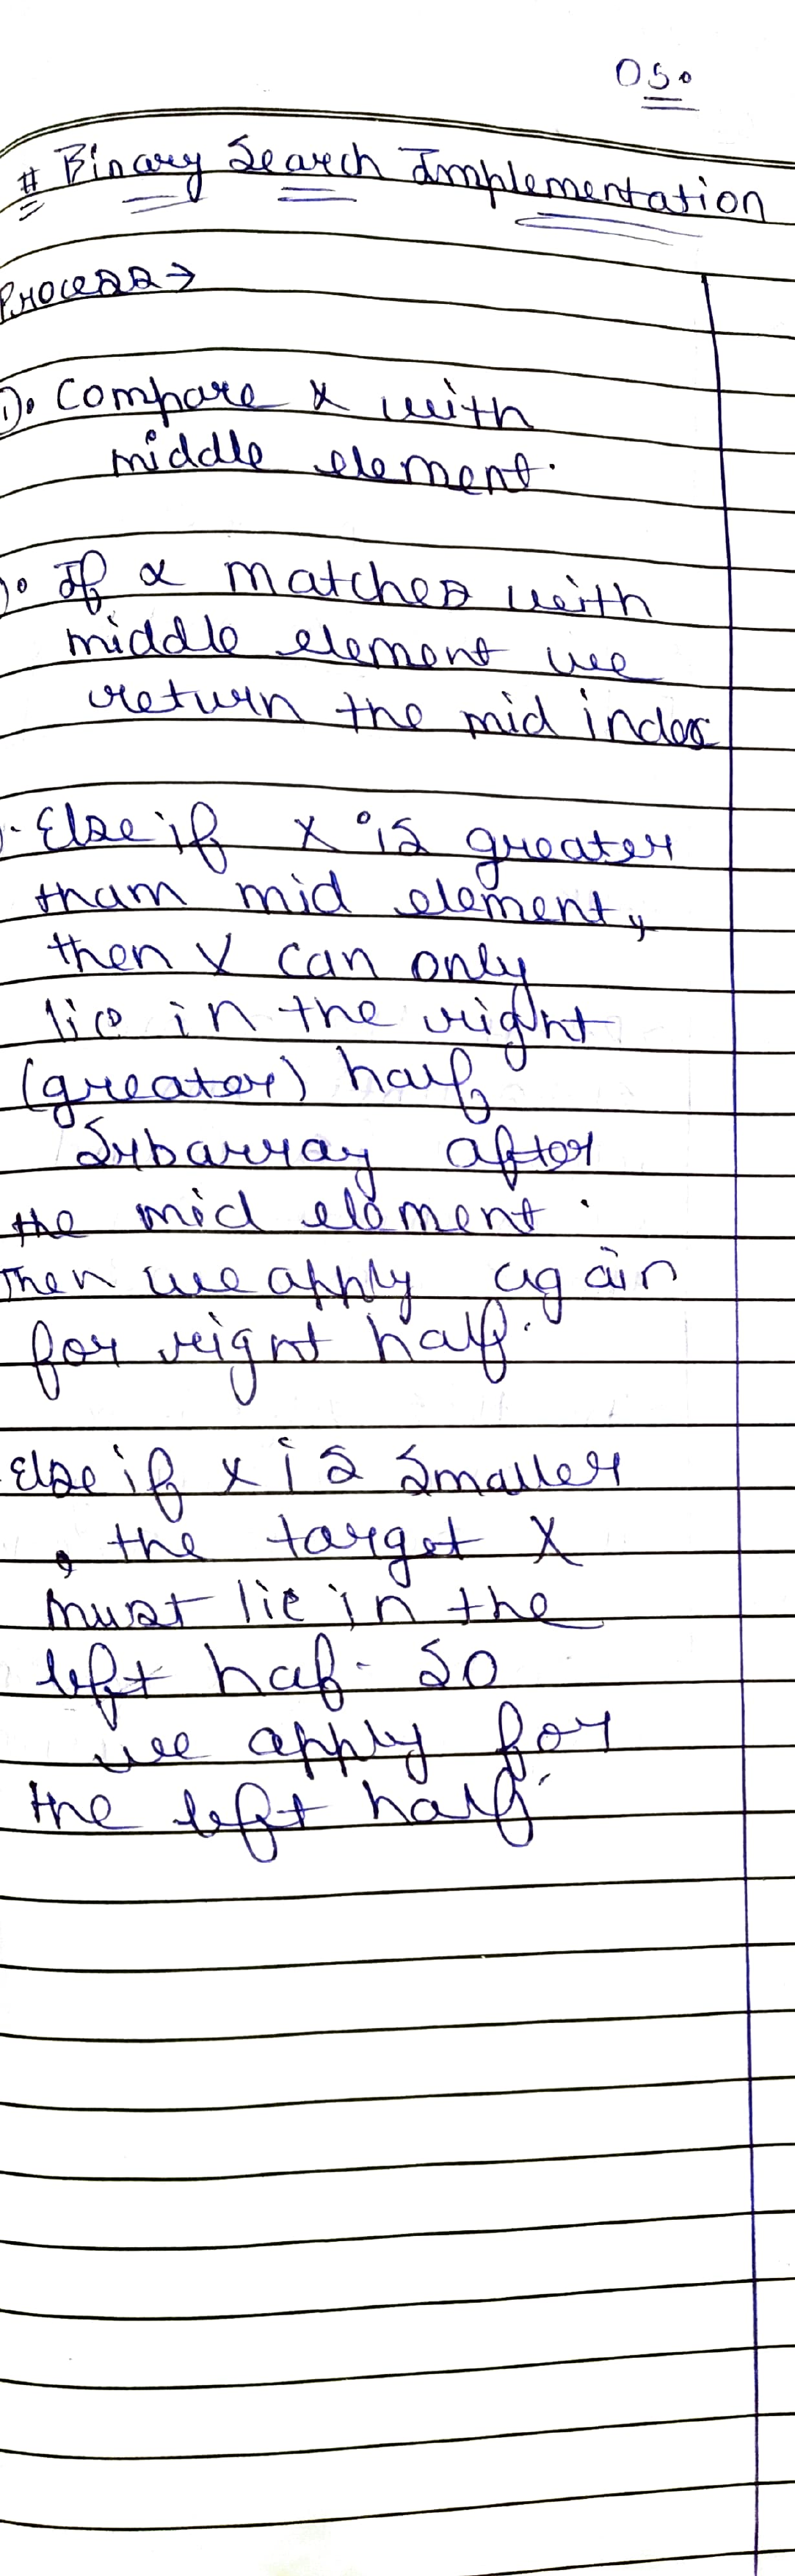 OS.
# Binary Search Implementation
Process →
1). Compare x with
middle element.
). If x matches with
middle element we
return the mid index
). Else if x is greater
than mid element,
then x can only
lie in the right
(greater) half
Subarray after
the mid element.
Then we apply again
for right half.
Else if x is smaller
, the target x
must lie in the
left haf. So
we apply for
the left half.